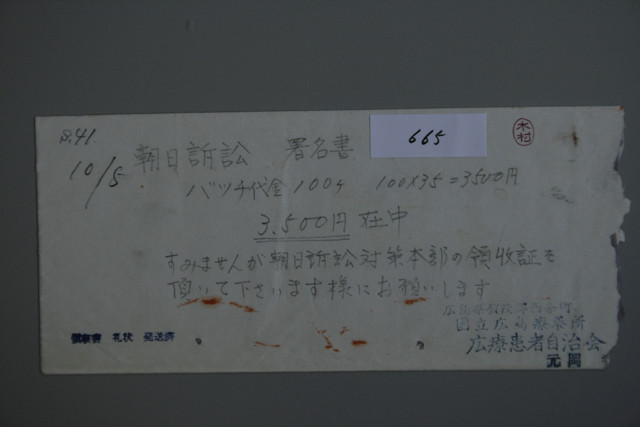 S.41.
10/5
朝日訴訟 署名書
665
木村
バッチ代金 100ヶ 100×35=3500円
3.500円 在中
すみませんが朝日訴訟対策本部の領収証を
頂いて下さいます様にお願いします
国立広島療養所
広療患者自治会
元岡
領収書 礼状 発送済